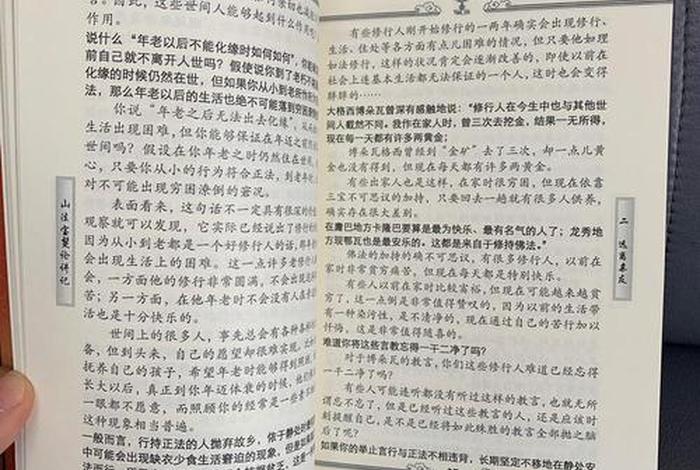 因此，这些世间人能够起到什么作用
作用。
说什么“年老以后不能化缘时如何如何”，你能
前自己就不离开人世吗？假使说你到了老朽不
化缘的时候仍然在世，但如果你从小到老所作所
法，那么年老以后的生活也绝不可能落到穷困潦倒
你说“年老之后无法出去化缘”，从而
生活出现困难，但你能够保证在年迈之前
世间吗？假设在你年老时仍然住在世间
心，只要你从小的行为符合正法，到老年
对不可能出现穷困潦倒的窘况。
表面看来，这句话不一定具有很深的
观察就可以发现，它实际已经说出了修行
因为从小到老都是一个好修行人的话，那
会出现生活上的困难。这一点许多老修行人
会，一方面他的修行非常圆满，不会出现
苦；另一方面，在他年老时不会没有人
活也是十分快乐的。
世间上的很多人，事先总会有各种各样
备，但到头来，自己的愿望却很难实现。比
抚养自己的孩子，希望年老时能够得到照
长大以后，真正到你年迈体衰的时候，他们
一眼都不愿意，而照顾你的经常是一些素不
这种现象相当普遍。
一般而言，行持正法的人抛弃故乡，依于静处
中可能会出现缺衣少食生活窘迫的现象，但是如
法而行
山法宝鬘论讲记
有些修行人刚开始修行的一两年确实会出现修行、
生活、住处等各方面有点儿困难的情况，但只要他如理
如法修行，这样的状况肯定会逐渐改善的，即使以前在
社会上连基本生活都无法保证的一个人，这时也会变得
胖胖的……
大格西博朵瓦曾深有感触地说：“修行人在今生中也与其他世
间人截然不同。我作在家人时，曾三次去挖金，结果一无所得，
现在每一天都有许多两黄金；
博朵瓦格西曾经到“金矿”去了三次，却一点儿黄
金也没有得到，但现在每天都有许多两黄金。
有些出家人也是这样，在家时很穷困，但现在依靠
三宝不可思议的加持，只要回去一趟就有很多人供养，
确实存在很大差别。
在庸巴地方卡隆巴要算是最为快乐、最有名气的人了；龙秀地
方现鄂瓦也是最安乐的。这都是来自于修持佛法。”
佛法的加持的确不可思议，有很多修行人，以前在
家时非常贫穷痛苦，但现在每天都是特别快乐。
有些人以前在家时比较富裕，但现在可能越来越贫
穷了，这一点倒是非常值得赞叹的，因为以前的生活带
有一种染污性，是不清净的，现在通过自己的苦行加以
忏悔，这是非常值得随喜的。
难道你将这些言教忘得一干二净了吗？
对于博朵瓦的教言，你们这些修行人难道已经忘得
一干二净了吗？
有些人可能连听都没有听过这样的教言，也就无所
谓忘不忘了，但是已经听过这些教言的人，还是应该时
刻提醒自己，是不是已经将如此殊胜的教言全部抛之脑
后了呢？
如果你的举止言行与正法不相违背，长期坚定不移地在静处安
二、远离亲友